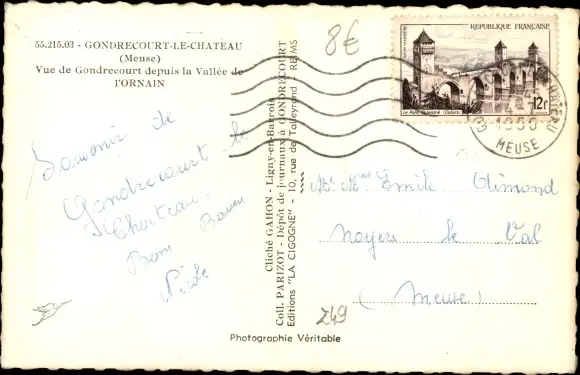 55.215.03 - GONDRECOURT-LE-CHATEAU
(Meuse)
Vue de Gondrecourt depuis la Vallée de
l'ORNAIN
8€
REPUBLIQUE FRANÇAISE
12F
1955
MEUSE
Souvenir de
Gondrecourt le
Château
Bons
Cliché GAHON - Ligny-en-Barrois
Coll. PARIZOT, Dépôt de Journaux à GONDRECOURT
Editions "LA CIGOGNE" - 10, rue de Talleyrand - REIMS
Mr Mme Émile
Noyers le Val
(Meuse)
249
Photographie Véritable